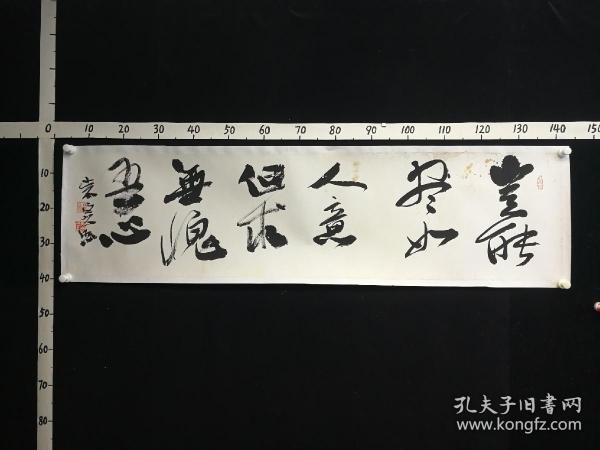 0 10 20 30 40 50 60 70 80 90 100 110 120 130 140 150
10
20
30
40
50
60
70
80
豈能
盡如
人意
但求
無愧
心
孔夫子旧書网
www.kongfz.com